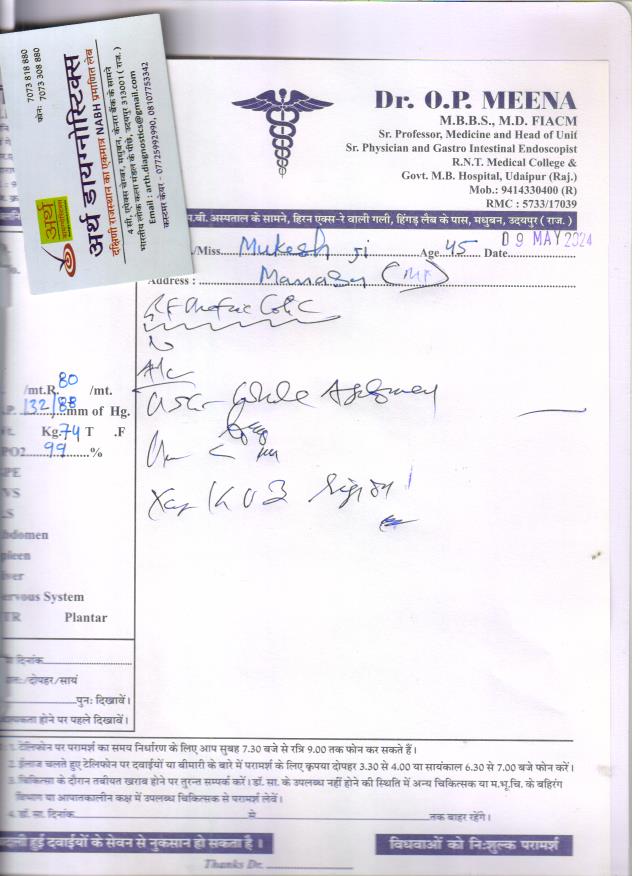 7073 818 880
फोन: 7073 308 880
अर्थ
अर्थ डायग्नोस्टिक्स
दक्षिणी राजस्थान का एकमात्र NABH प्रमाणित लेब
4 सी, एपेक्स चेम्बर, मधुबन, केनरा बैंक के सामने
भारतीय लोक कला मंडल के पीछे, उदयपुर 313001 ( राज. )
Email : arth.diagnostics@gmail.com
कस्टमर केयर - 07725992990, 08107753342
Dr. O.P. MEENA
M.B.B.S., M.D. FIACM
Sr. Professor, Medicine and Head of Unif
Sr. Physician and Gastro Intestinal Endoscopist
R.N.T. Medical College &
Govt. M.B. Hospital, Udaipur (Raj.)
Mob.: 9414330400 (R)
RMC : 5733/17039
.बी. अस्पताल के सामने, हिरन एक्स-रे वाली गली, हिंगड़ लैब के पास, मधुबन, उदयपुर ( राज. )
/Miss Mukesh ji Age 45 Date 09 MAY 2024
Address :
/mt.R. 80 /mt.
.P. 132/88 mm of Hg.
Kg. 74 T .F
PO2 99 %
PE
VS
.S
bdomen
pleen
iver
ervous System
TR Plantar
दिनांक
/दोपहर/सायं
पुन: दिखावें।
होने पर पहले दिखावें।
1. टेलिफोन पर परामर्श का समय निर्धारण के लिए आप सुबह 7.30 बजे से रात्रि 9.00 तक फोन कर सकते हैं।
2. ईलाज चलते हुए टेलिफोन पर दवाईयों या बीमारी के बारे में परामर्श के लिए कृपया दोपहर 3.30 से 4.00 या सायंकाल 6.30 से 7.00 बजे फोन करें।
3. चिकित्सा के दौरान तबीयत खराब होने पर तुरन्त सम्पर्क करें। डॉ. सा. के उपलब्ध नहीं होने की स्थिति में अन्य चिकित्सक या म.भू.चि. के बहिरंग
विभाग या आपातकालीन कक्ष में उपलब्ध चिकित्सक से परामर्श लेवें।
4. डॉ. सा. दिनांक से तक बाहर रहेंगे।
हुई दवाईयों के सेवन से नुकसान हो सकता है।
विधवाओं को नि:शुल्क परामर्श
Thanks Dr.